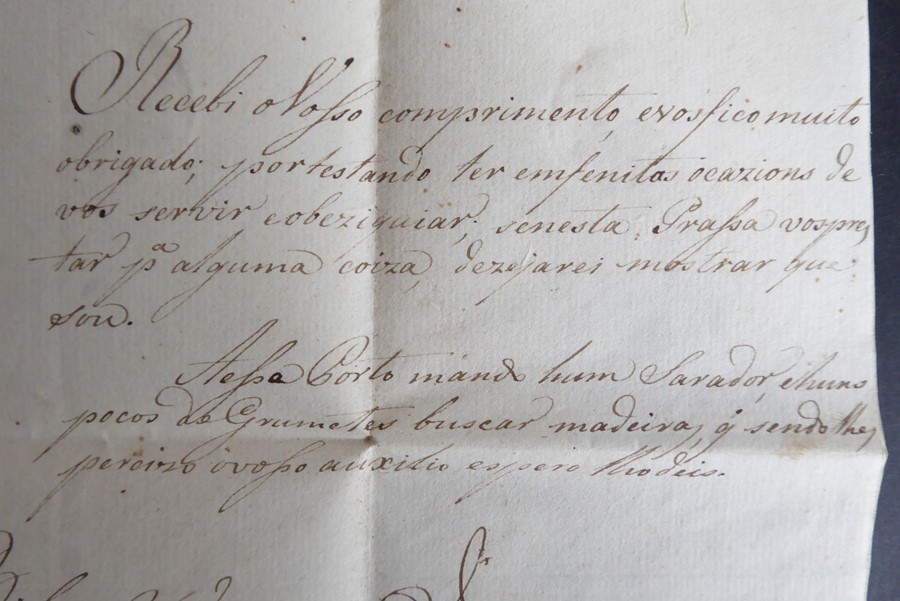 Recebi o Vosso comprimento, evosfico muito
obrigado; portestando ter emfenitos ocazions de
vos servir eobeziquiar; senesta Prassa vospres
tar pª alguma coiza, dezejarei mostrar que
sou.
Aessa Porto mando hum Sarador, ehuns
pocos de Grumetes buscar madeira, q̃ sendolhe,
percizo ovosso auxilio espero lhodeis.